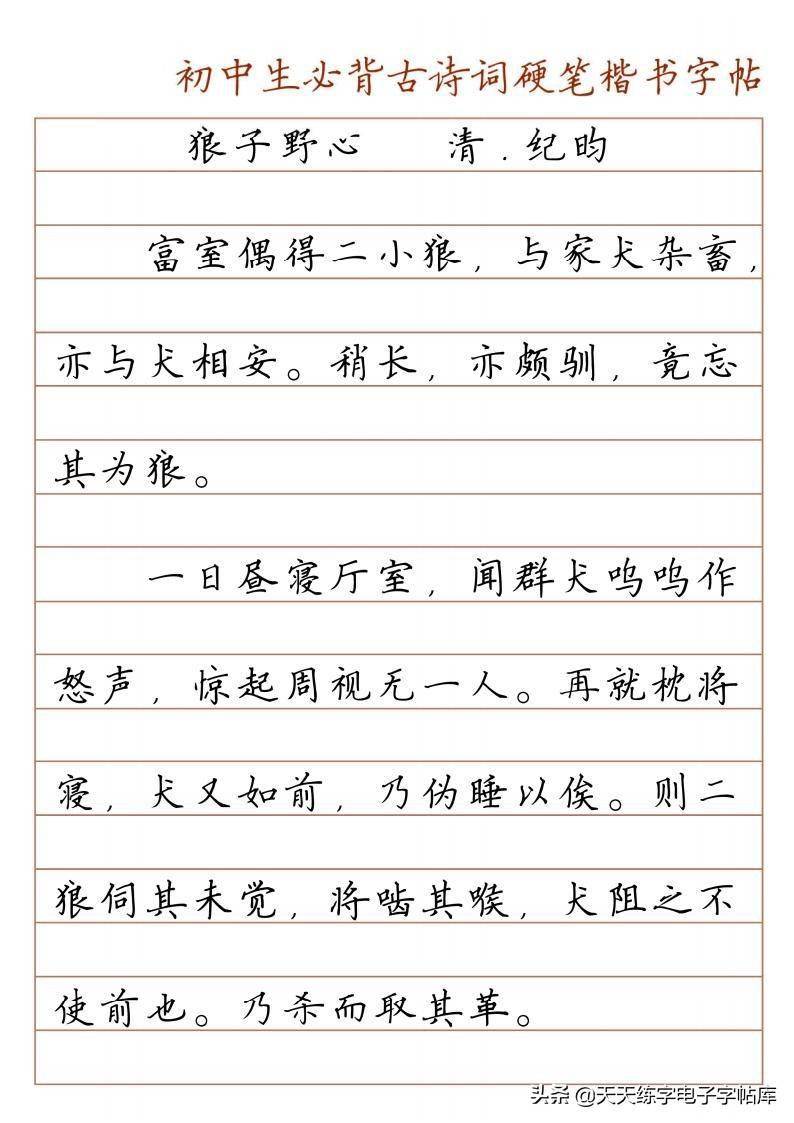 初中生必背古诗词硬笔楷书字帖
狼子野心 清.纪昀
富室偶得二小狼，与家犬杂畜，
亦与犬相安。稍长，亦颇驯，竟忘
其为狼。
一日昼寝厅室，闻群犬呜呜作
怒声，惊起周视无一人。再就枕将
寝，犬又如前，乃伪睡以俟。则二
狼伺其未觉，将啮其喉，犬阻之不
使前也。乃杀而取其革。
头条 @天天练字电子字帖库